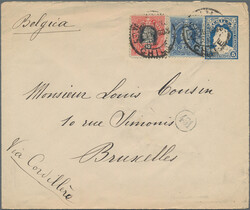 Belgica
Monsieur Louis Cousin
10 rue Simonis
Bruxelles
Via Cordillère